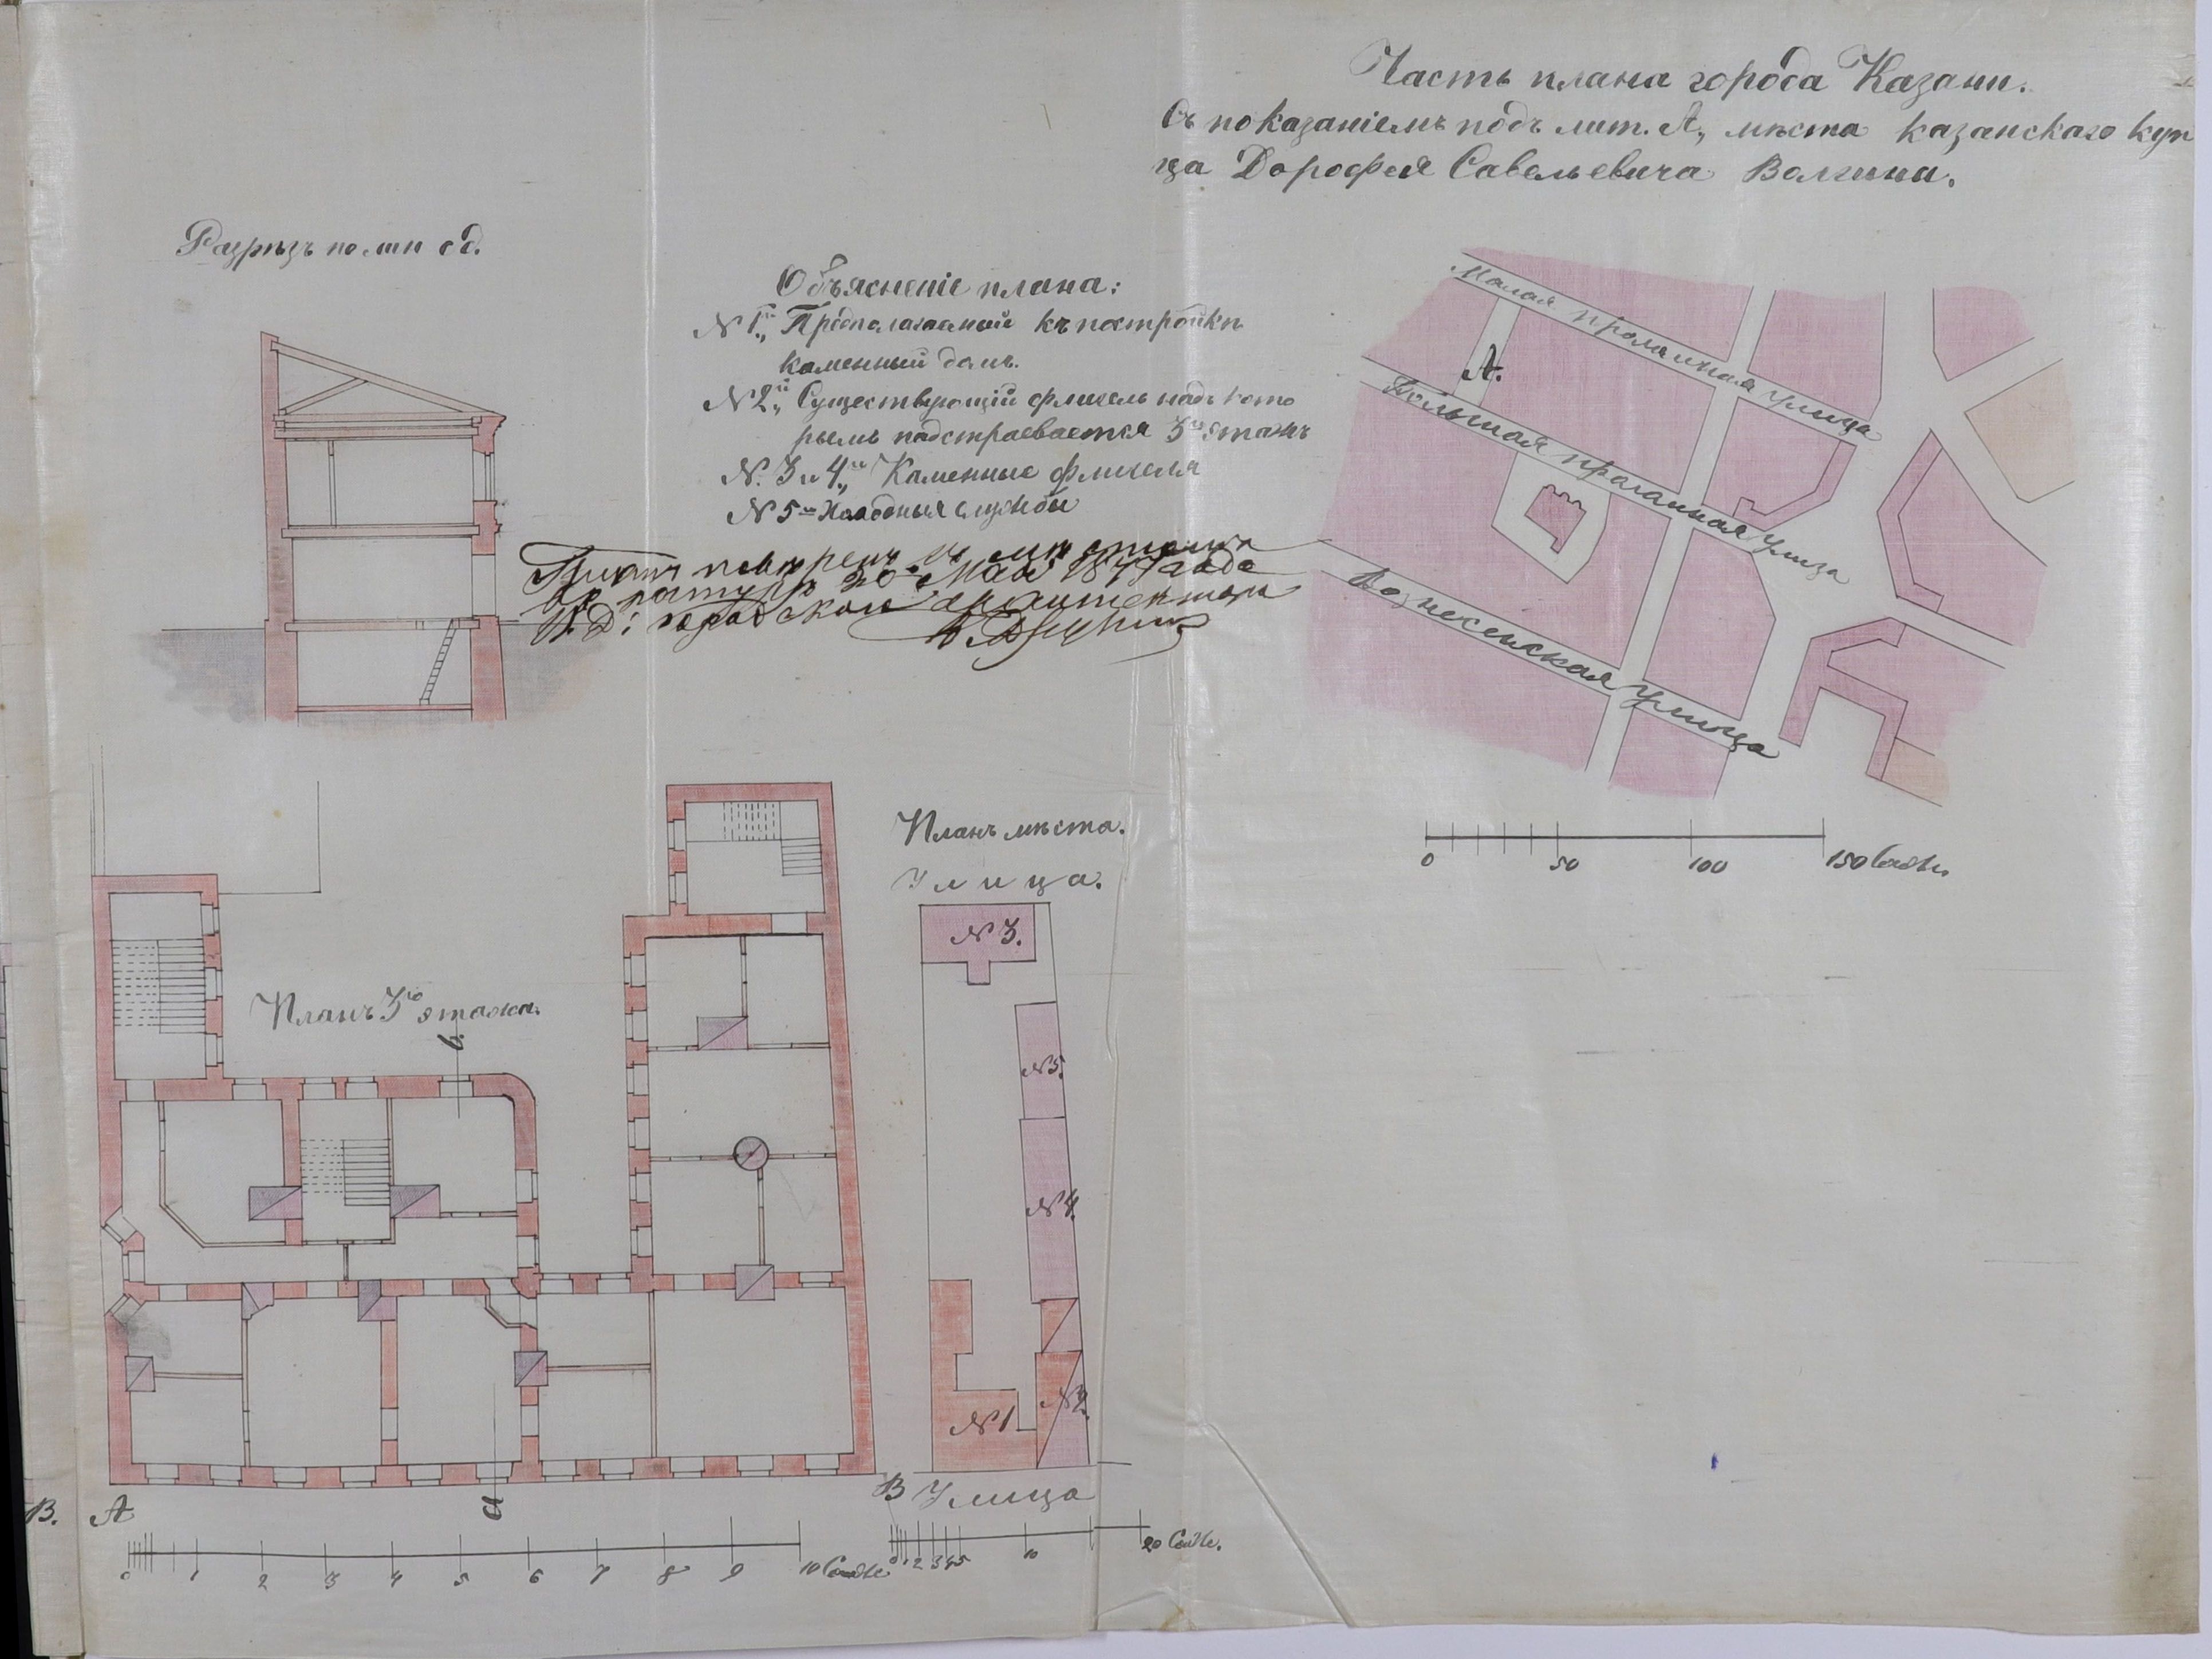 Часть плана города Казани.
Съ показаніемъ подъ лит. А, мѣста казанскаго куп
ца Дорофея Савельевича Волгина.
Разрѣзъ по лин cd.
Объясненіе плана:
N 1й Предполагаемый къ постройкѣ
каменный домъ.
N 2й Существующій флигель надъ кото
рымъ надстраевается 3й этажъ
N. 3 и 4й Каменные флигеля
N 5й Холодныя службы
Планъ повѣренъ съ мѣстомъ
въ натурѣ 20 Мая 1877 года
И. Д: городскаго архитектора
Малая проломная улица
А.
Большая проломная улица
Вознесенская улица
0 50 100 150 Саж.
Планъ мѣста.
Улица.
N 3.
N 5.
N 4.
N 2.
N 1
Улица
0 1 2 3 4 5 10 20 Саж.
Планъ 3го этажа.
b.
d
А
В
В.
0 1 2 3 4 5 6 7 8 9 10 Саж